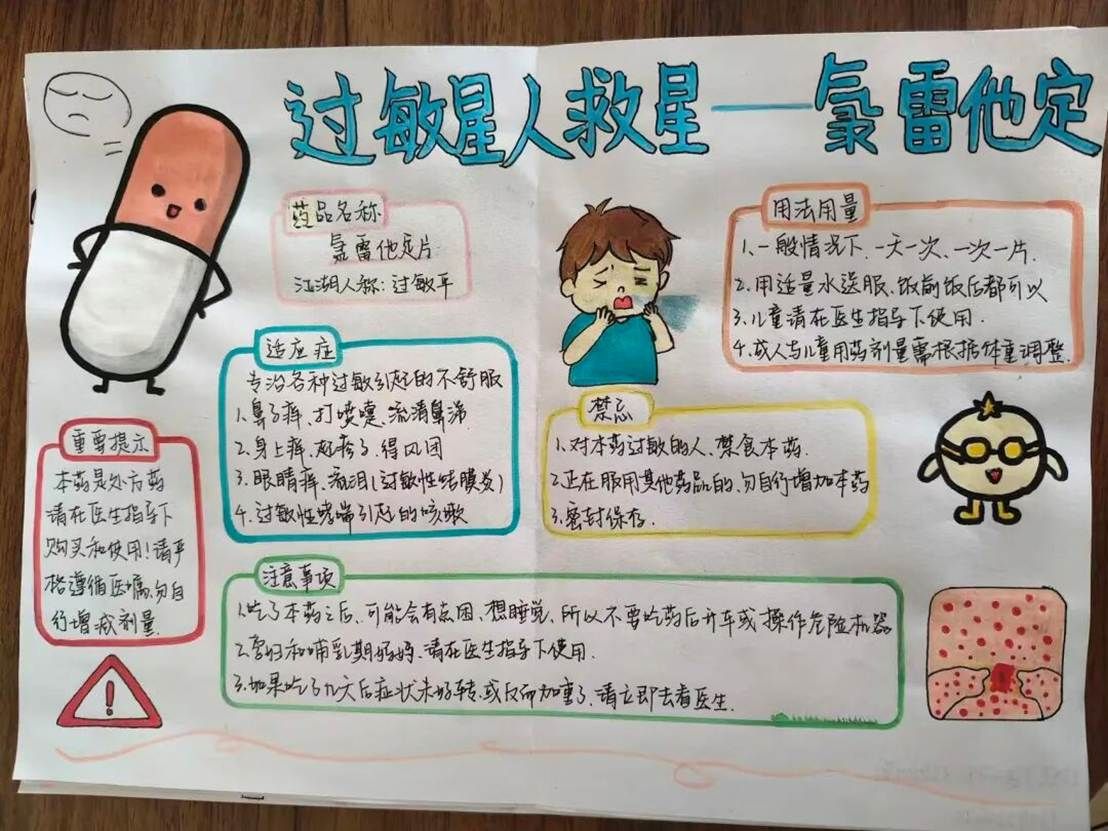 过敏星人救星——氯雷他定
药品名称
氯雷他定片
江湖人称:过敏平
用法用量
1.一般情况下,一天一次、一次一片.
2.用适量水送服、饭前饭后都可以
3.儿童请在医生指导下使用.
4.成人与儿童用药剂量需根据体重调整.
适应症
专治各种过敏引起的不舒服
1.鼻子痒、打喷嚏、流清鼻涕
2.身上痒、起疹子、得风团
3.眼睛痒、流泪(过敏性结膜炎)
4.过敏性哮喘引起的咳嗽
禁忌
1.对本药过敏的人、禁食本药.
2.正在服用其他药品的,勿自行增加本药
3.密封保存.
重要提示
本药是处方药
请在医生指导下
购买和使用!请严
格遵循医嘱,勿自
行增减剂量.
注意事项
1.吃了本药之后,可能会有点困、想睡觉,所以不要吃药后开车或操作危险机器
2.孕妇和哺乳期妈妈、请在医生指导下使用.
3.如果吃了几天后症状未好转,或反而加重了、请立即去看医生.